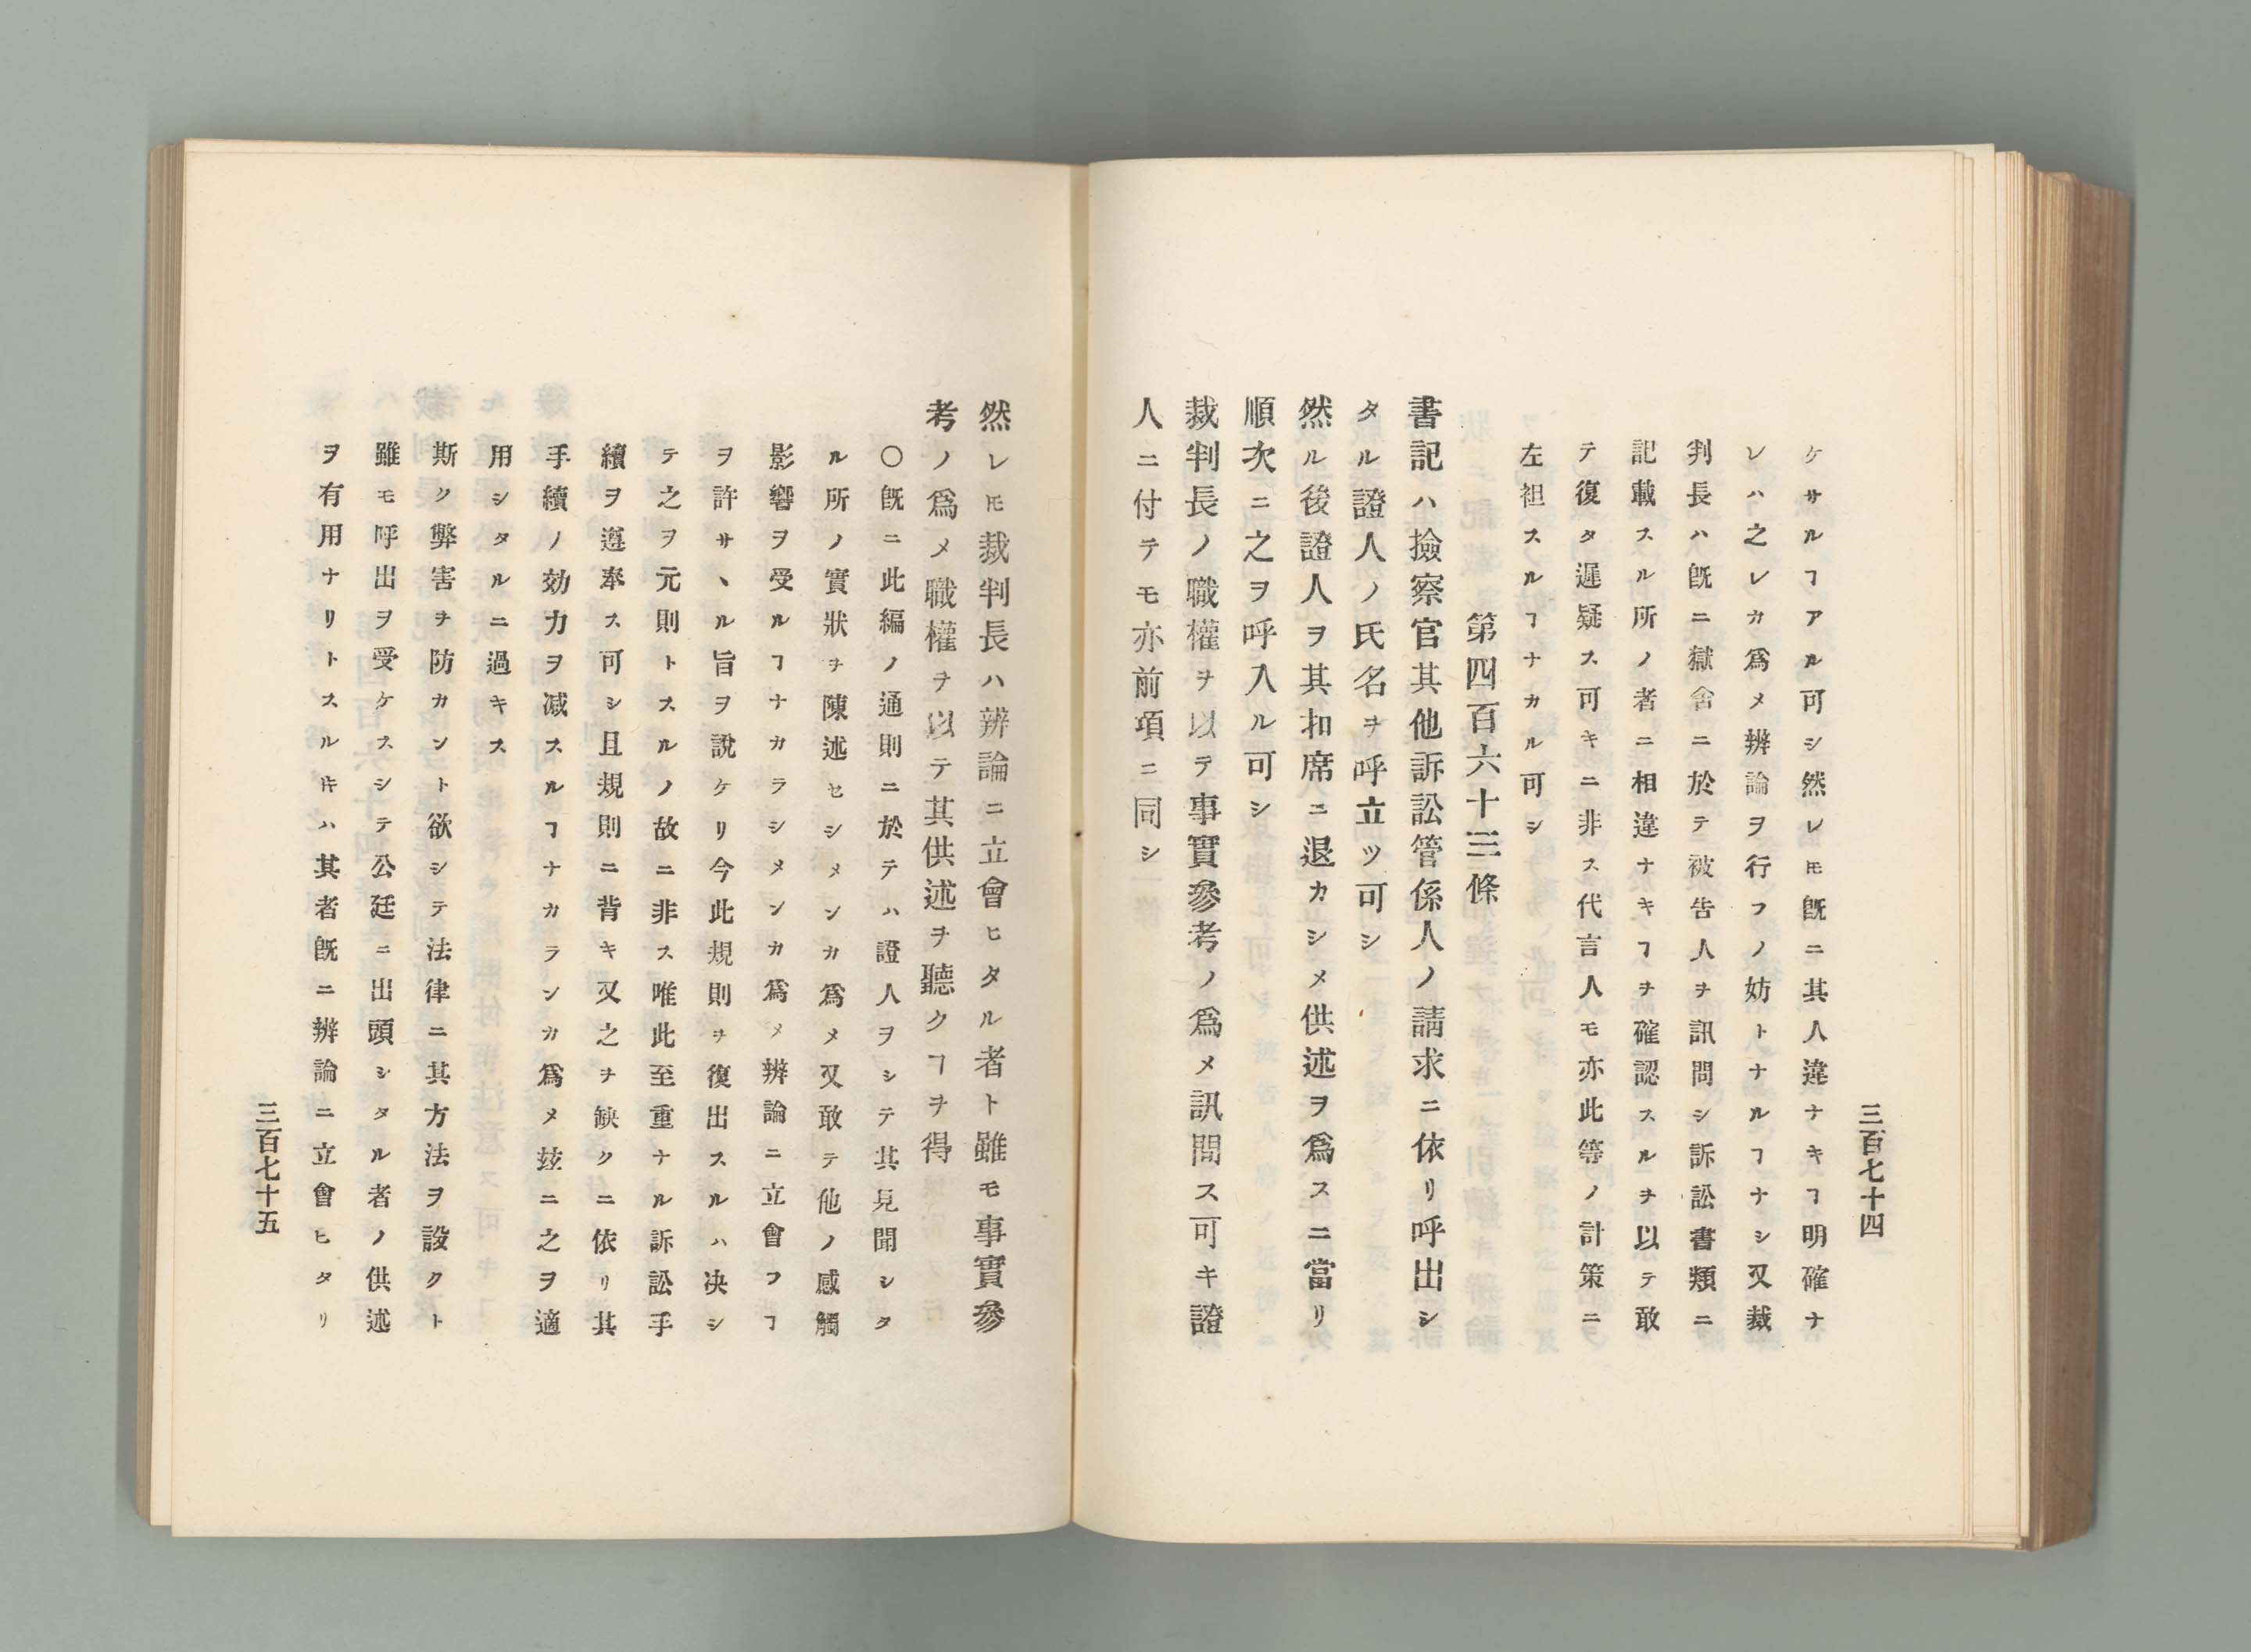 三百七十四
ケサルヿアル可シ然レ𪜈旣ニ其人違ナキヿ明確ナ
レハ之レカ爲メ辨論ヲ行フノ妨トナルヿナシ又裁
判長ハ旣ニ獄舍ニ於テ被告人ヲ訊問シ訴訟書類ニ
記載スル所ノ者ニ相違ナキヿヲ確認スルヲ以テ敢
テ復タ遲疑ス可キニ非ス代言人モ亦此等ノ計策ニ
左袒スルヿナカル可シ
第四百六十三條
書記ハ撿察官其他訴訟管係人ノ請求ニ依リ呼出シ
タル證人ノ氏名ヲ呼立ツ可シ
然ル後證人ヲ其扣席ニ退カシメ供述ヲ爲スニ當リ
順次ニ之ヲ呼入ル可シ
裁判長ノ職權ヲ以テ事實參考ノ爲メ訊問ス可キ證
人ニ付テモ亦前項ニ同シ
然レ𪜈裁判長ハ辨論ニ立會ヒタル者ト雖モ事實參
考ノ爲メ職權ヲ以テ其供述ヲ聽クヿヲ得
〇旣ニ此編ノ通則ニ於テハ證人ヲシテ其見聞シタ
ル所ノ實狀ヲ陳述セシメンカ爲メ又敢テ他ノ感觸
影響ヲ受ルヿナカラシメンカ爲メ辨論ニ立會フヿ
ヲ許サヽル旨ヲ說ケリ今此規則ヲ復出スルハ决シ
テ之ヲ元則トスルノ故ニ非ス唯此至重ナル訴訟手
續ヲ遵奉ス可シ且規則ニ背キ又之ヲ缺クニ依リ其
手續ノ効力ヲ减スルヿナカランカ爲メ玆ニ之ヲ適
用シタルニ過キス
斯ク弊害ヲ防カント欲シテ法律ニ其方法ヲ設クト
雖モ呼出ヲ受ケスシテ公廷ニ出頭シタル者ノ供述
ヲ有用ナリトスルキハ其者旣ニ辨論ニ立會ヒタリ
三百七十五